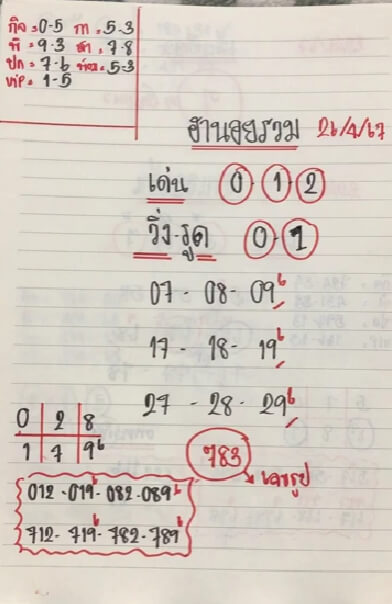 กิจ = 0-5 กา = 5-3
พี = 9-3 สา = 7-8
ปก = 7-6 ท่อง = 5-3
VIP = 1-5
ฮานอยรวม 26/4/67
เด่น 0 - 1 - 2
วิ่ง-รูด 0 - 1
07 - 08 - 09⁶
17 - 18 - 19⁶
27 - 28 - 29⁶
0 2 8
1 7 9⁶
783
เลขรูป
012-019⁶-082-089⁶
712-719⁶-782-789⁶